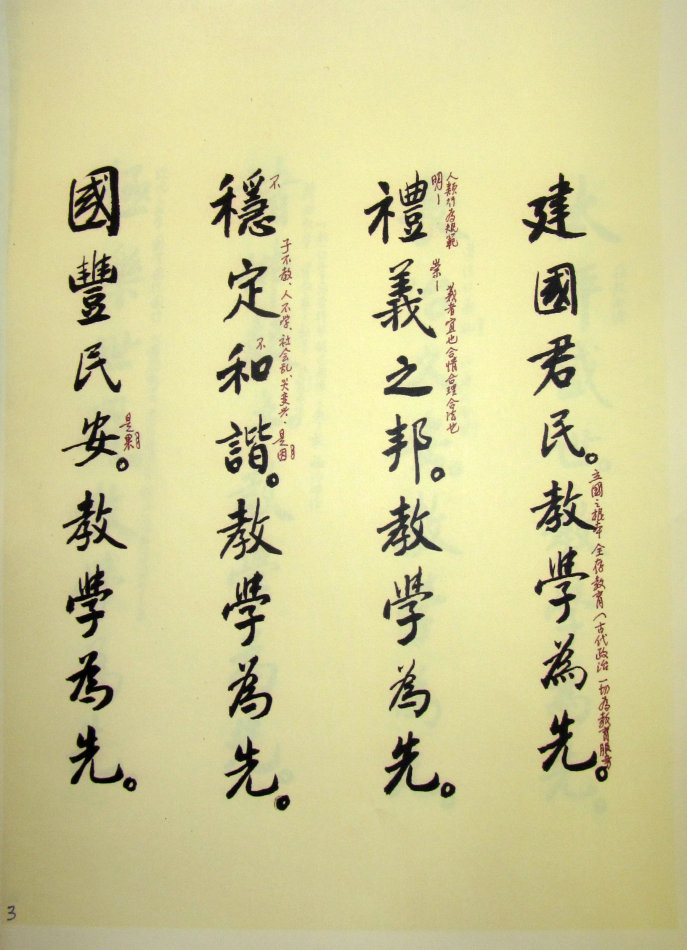 建國君民。教學為先。
立國之根本 全存教育（古代政治 一切為教育服務
禮義之邦。教學為先。
人類行為規範
明一
崇一
義者宜也合情合理合法也
穩定和諧。教學為先。
不
不
子不教、人不学、社会乱、災变兴、是因
月
國豐民安。教學為先。
是果
月
3